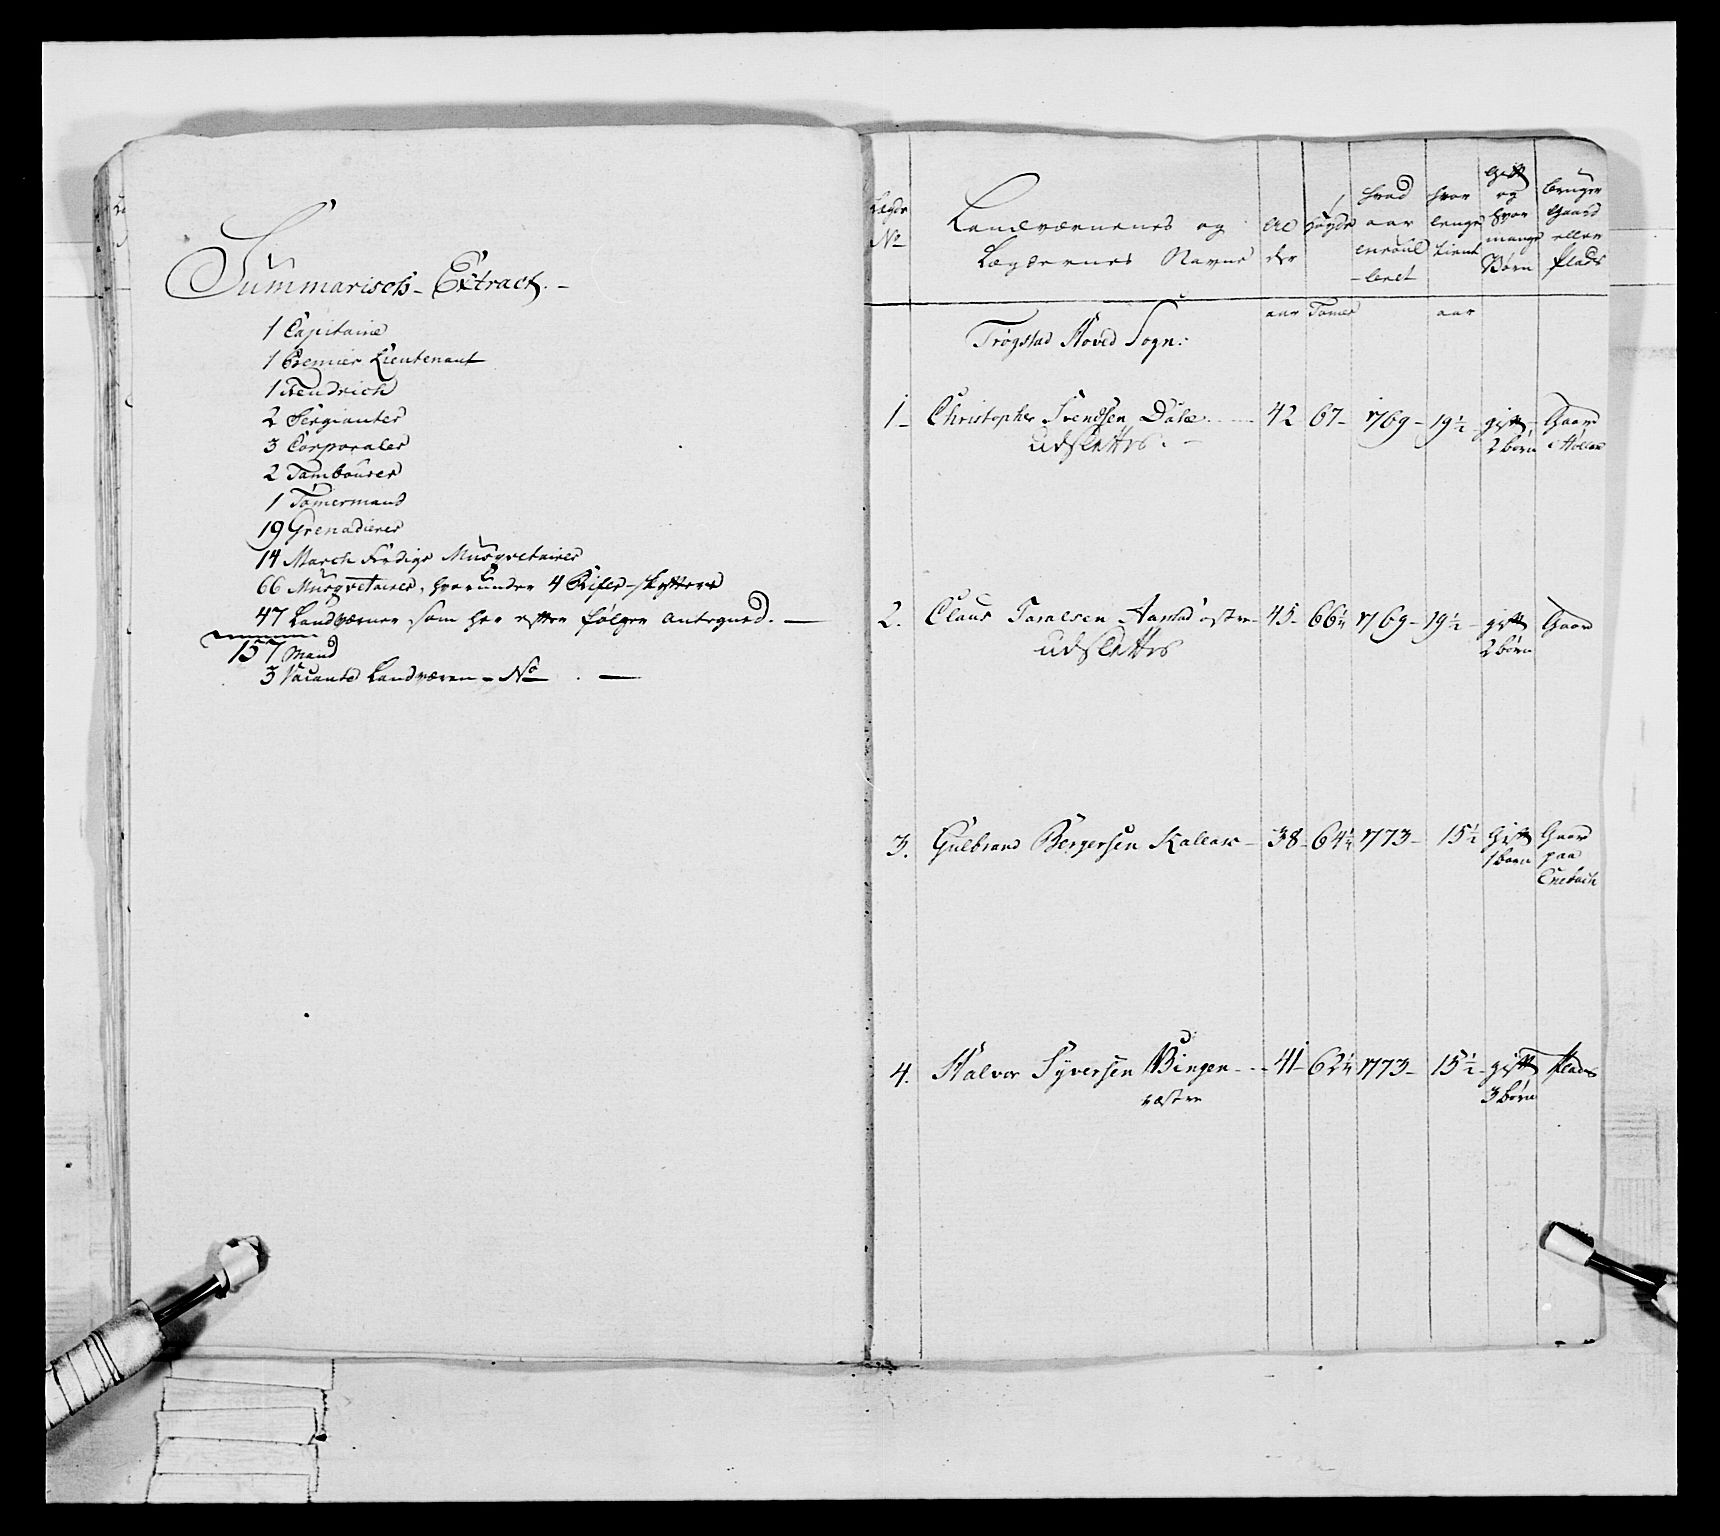 Summarisch Extract. -
1 Capitaine
1 Premier Lieutenant
1 Fendrich
2 Sergianter
3 Corporaler
2 Tambourer
1 Tømermand
19 Grenadierer
14 March Færdige Musqvetairer
66 Musqvetairer, hvorunder 4 Rifler-skyttere
47 Landværner som her efter følger antegned. —
157 Mand
3 Vacante Landværn - No —
Lægds No
Landværnernes og Lægdernes Navne
Alder
høyde
hvad aar enroulleret
hvor lenge tient
Gift og hvor mange Børn
bruger Gaard eller Plads
aar Tomer aar
Trøgstad Hoved Sogn:
1 - Christopher Svendsen Dahl 42 67 - 1769 - 19½ - gift - Gaard
udslettes. - 2 børn i
2. Claus Aarstad østre - 45 - 66¼ 1769 - 19½ - gift Gaard
udslettes 2 børn
3. Gulbrand Bergersen Kallak - 38 - 64¼ 1773 - 15½ Gift Gaard
1 barn paa
Enebach
4. Halvor Syversen Bingen - 41 - 62¼ 1773 - 15½ - gift Plads
vestre 3 børn